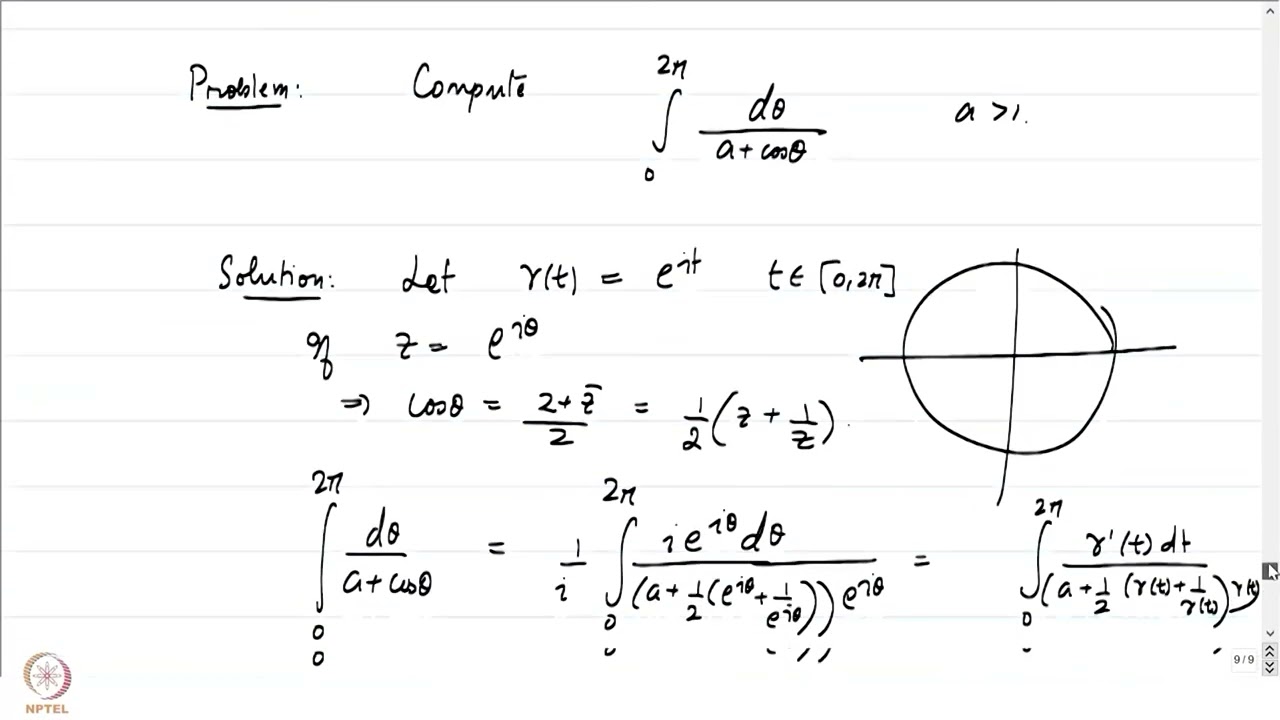 Problem: Compute ∫₀^{2π} dθ / (a + cosθ) a > 1.
Solution: Let γ(t) = e^{it} t ∈ [0, 2π]
If z = e^{iθ}
⇒ cosθ = (z + z̄)/2 = 1/2 (z + 1/z).
∫₀^{2π} dθ / (a + cosθ) = 1/i ∫₀^{2π} i e^{iθ} dθ / ((a + 1/2 (e^{iθ} + 1/e^{iθ})) e^{iθ}) = ∫₀^{2π} γ'(t) dt / ((a + 1/2 (γ(t) + 1/γ(t))) γ(t))
9/9
NPTEL